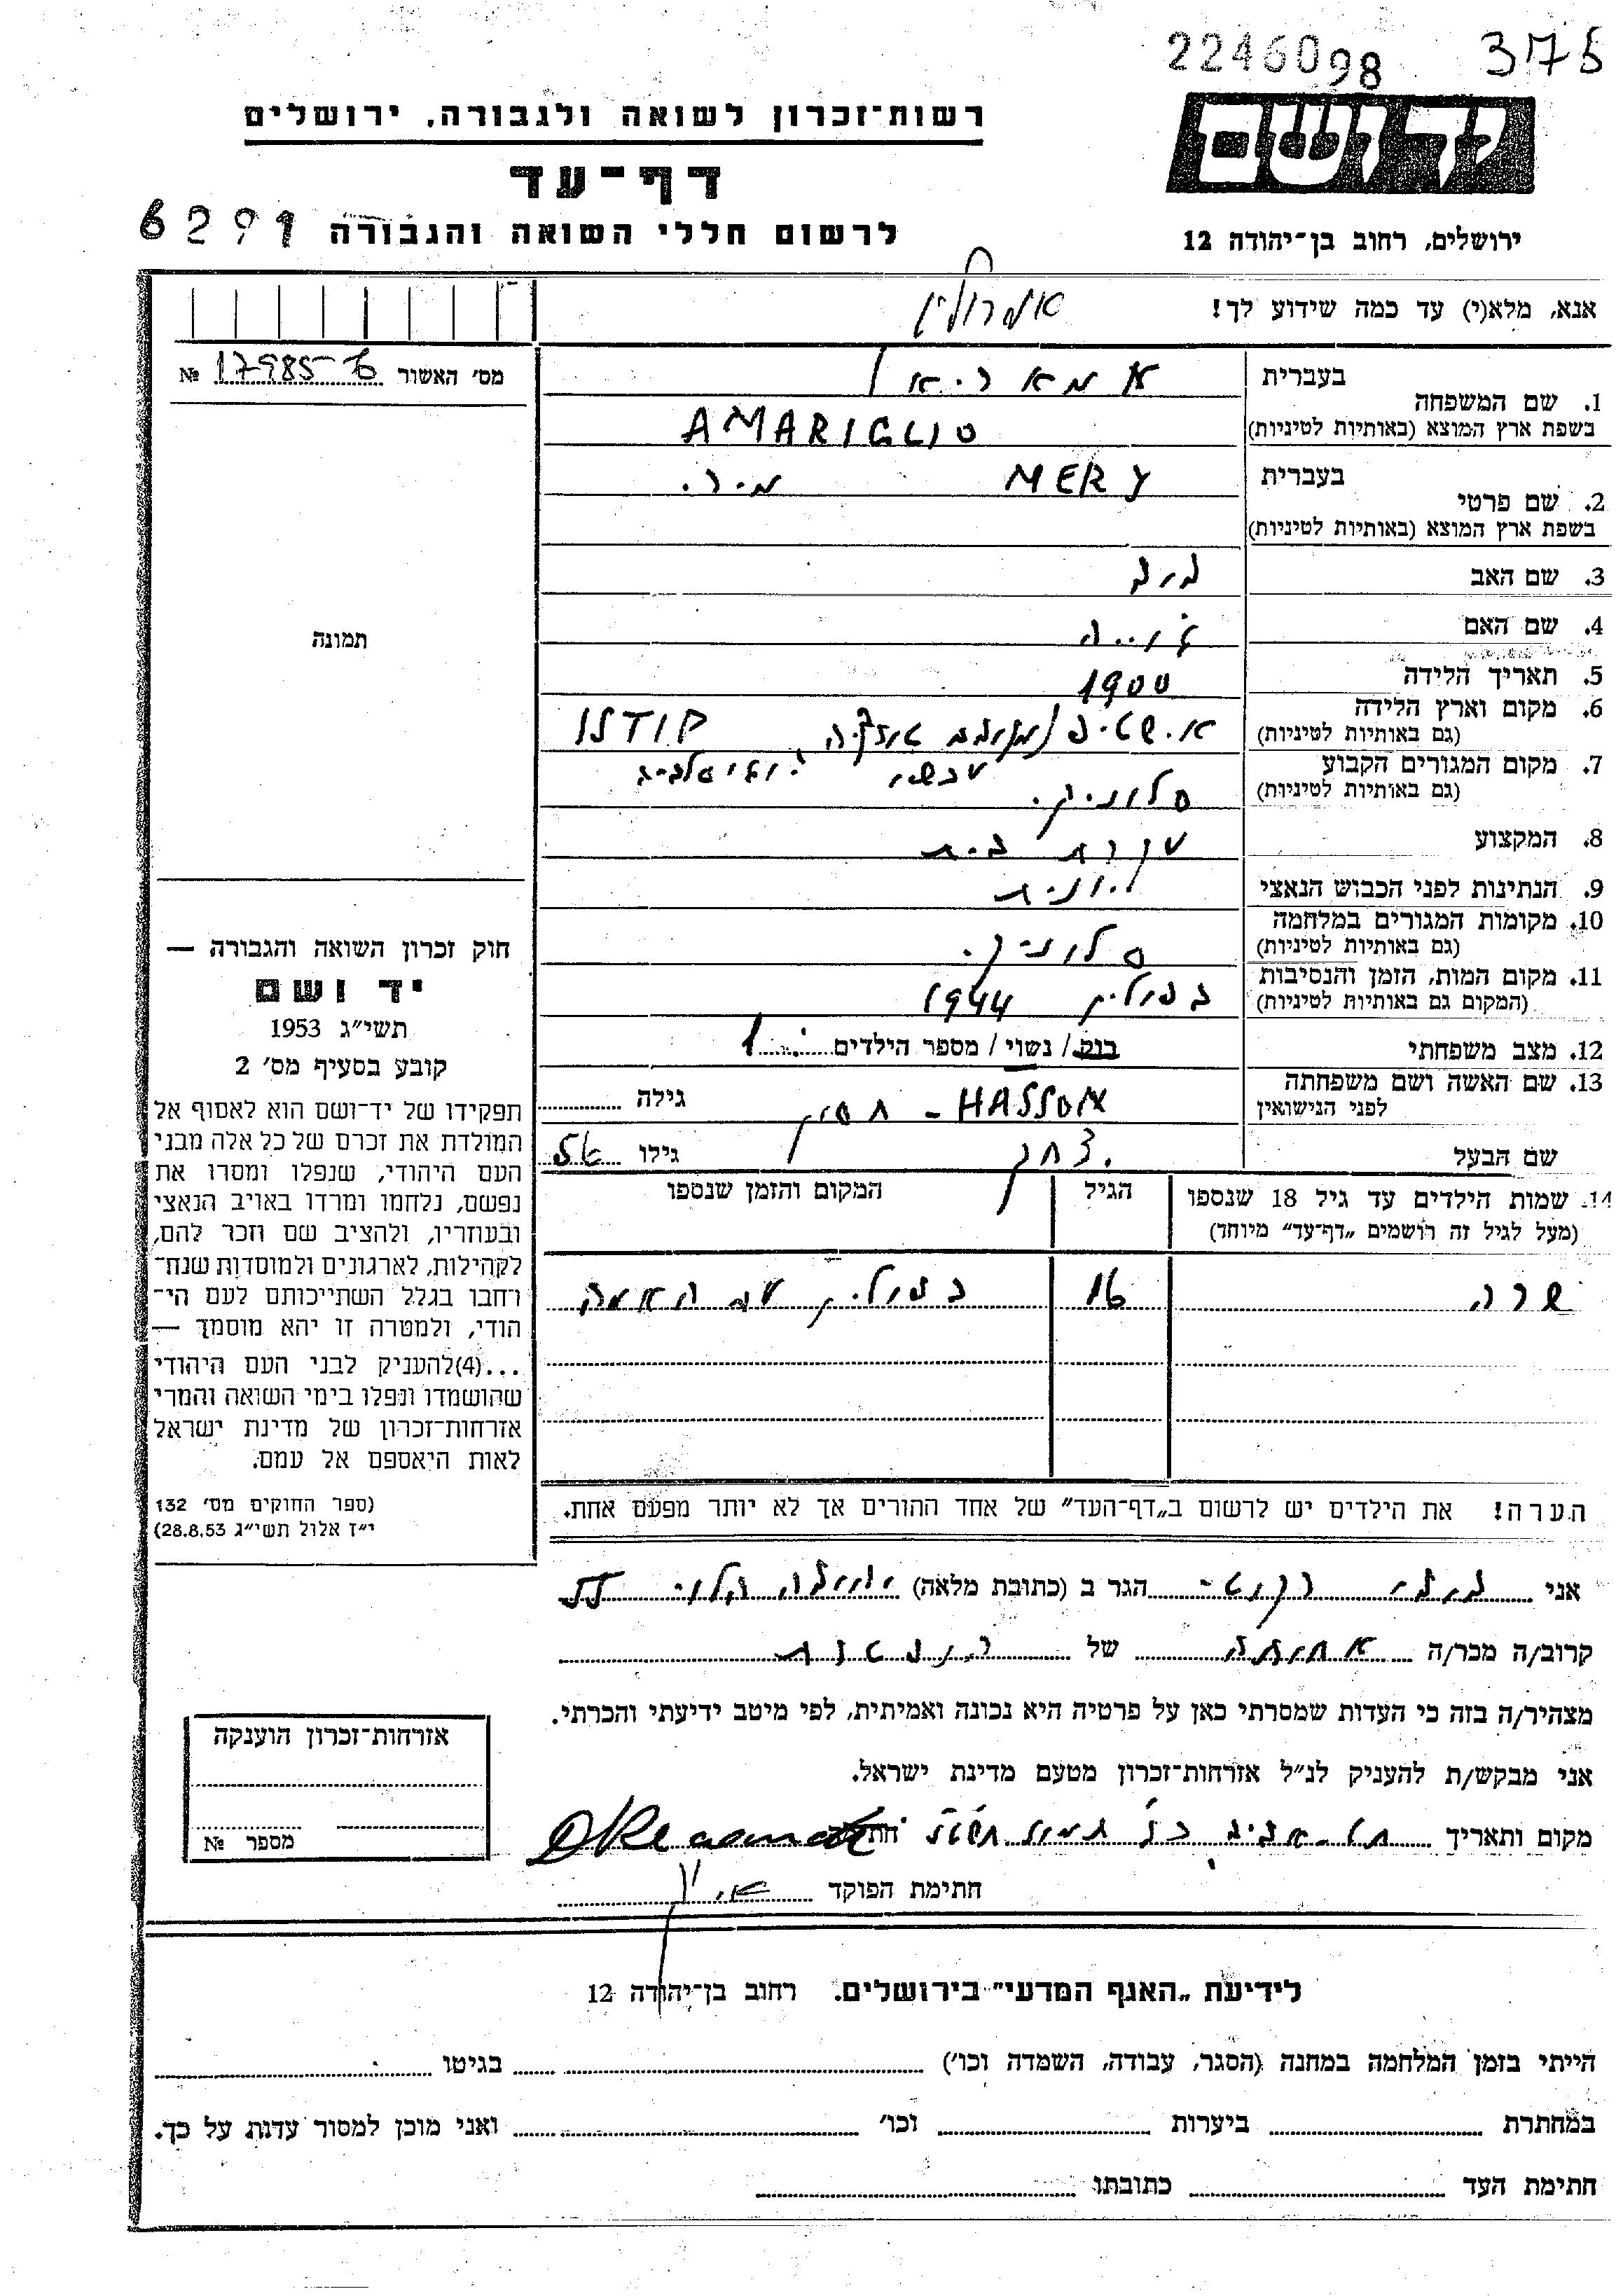 2246098 375
רשות־זכרון לשואה ולגבורה, ירושלים
דף־עד
לרשום חללי השואה והגבורה 6291
ידושם
ירושלים, רחוב בן־יהודה 12
אנא, מלא(י) עד כמה שידוע לך!
מס׳ האשור № 17985-ג
1. שם המשפחה
בעברית
בשפת ארץ המוצא (באותיות לטיניות) AMARIGLIO
2. שם פרטי
בעברית MERY מירי
בשפת ארץ המוצא (באותיות לטיניות)
3. שם האב
4. שם האם
5. תאריך הלידה 1900
6. מקום וארץ הלידה
(גם באותיות לטיניות)
עכשיו
7. מקום המגורים הקבוע
(גם באותיות לטיניות) סלוניקי
8. המקצוע עקרת בית
9. הנתינות לפני הכבוש הנאצי יונית
10. מקומות המגורים במלחמה
(גם באותיות לטיניות) סלוניקי
11. מקום המות, הזמן והנסיבות
(המקום גם באותיות לטיניות) בפולין 1944
12. מצב משפחתי רווק / נשוי / מספר הילדים 1
13. שם האשה ושם משפחתה
לפני הנישואין HASSON - חסון גילה
שם הבעל יצחק גילו
14. שמות הילדים עד גיל 18 שנספו הגיל המקום והזמן שנספו
(מעל לגיל זה רושמים „דף־עד״ מיוחד)
שרה 16 בפולין עם האמא
הערה! את הילדים יש לרשום ב„דף־העד״ של אחד ההורים אך לא יותר מפעם אחת.
תמונה
חוק זכרון השואה והגבורה —
יד ושם
תשי״ג 1953
קובע בסעיף מס׳ 2
תפקידו של יד־ושם הוא לאסוף אל
המולדת את זכרם של כל אלה מבני
העם היהודי, שנפלו ומסרו את
נפשם, נלחמו ומרדו באויב הנאצי
ובעוזריו, ולהציב שם וזכר להם,
לקהילות, לארגונים ולמוסדות שנח־
רחבו בגלל השתייכותם לעם הי־
הודי, ולמטרה זו יהא מוסמך —
...(4)להעניק לבני העם היהודי
שהושמדו ונפלו בימי השואה והמרי
אזרחות־זכרון של מדינת ישראל
לאות היאספם אל עמם.
(ספר החוקים מס׳ 132
י״ז אלול תשי״ג 28.8.53)
אני הגר ב (כתובת מלאה) יהודה הלוי
קרוב/ה מכר/ה אחותה של
מצהיר/ה בזה כי העדות שמסרתי כאן על פרטיה היא נכונה ואמיתית, לפי מיטב ידיעתי והכרתי.
אני מבקש/ת להעניק לנ״ל אזרחות־זכרון מטעם מדינת ישראל.
מקום ותאריך תל-אביב
חתימת הפוקד
אזרחות־זכרון הוענקה
מספר №
לידיעת „האגף המדעי״ בירושלים. רחוב בן־יהודה 12
הייתי בזמן המלחמה במחנה (הסגר, עבודה, השמדה וכו׳) בגיטו
במחתרת ביערות וכו׳ ואני מוכן למסור עדות על כך.
חתימת העד כתובתו